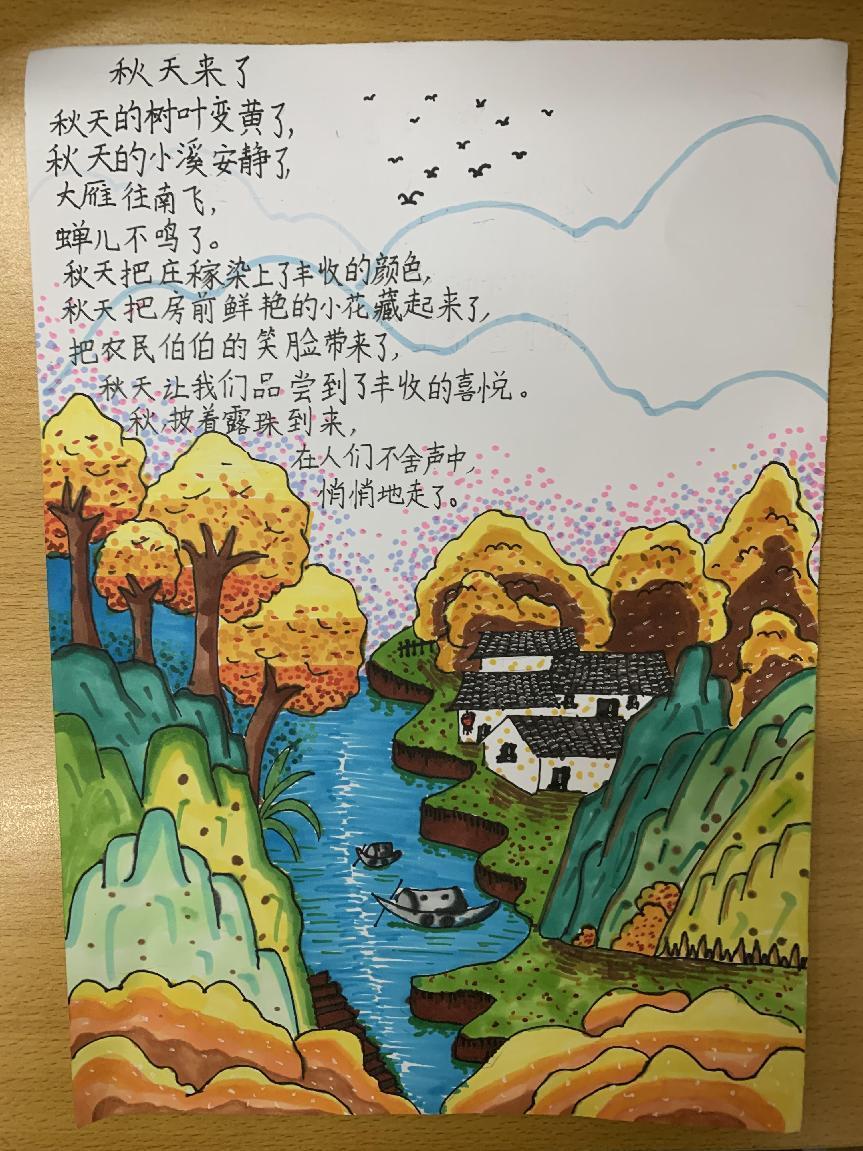 秋天来了
秋天的树叶变黄了,
秋天的小溪安静了,
大雁往南飞,
蝉儿不鸣了。
秋天把庄稼染上了丰收的颜色,
秋天把房前鲜艳的小花藏起来了,
把农民伯伯的笑脸带来了,
秋天让我们品尝到了丰收的喜悦。
秋,披着露珠到来,
在人们不舍声中,
悄悄地走了。